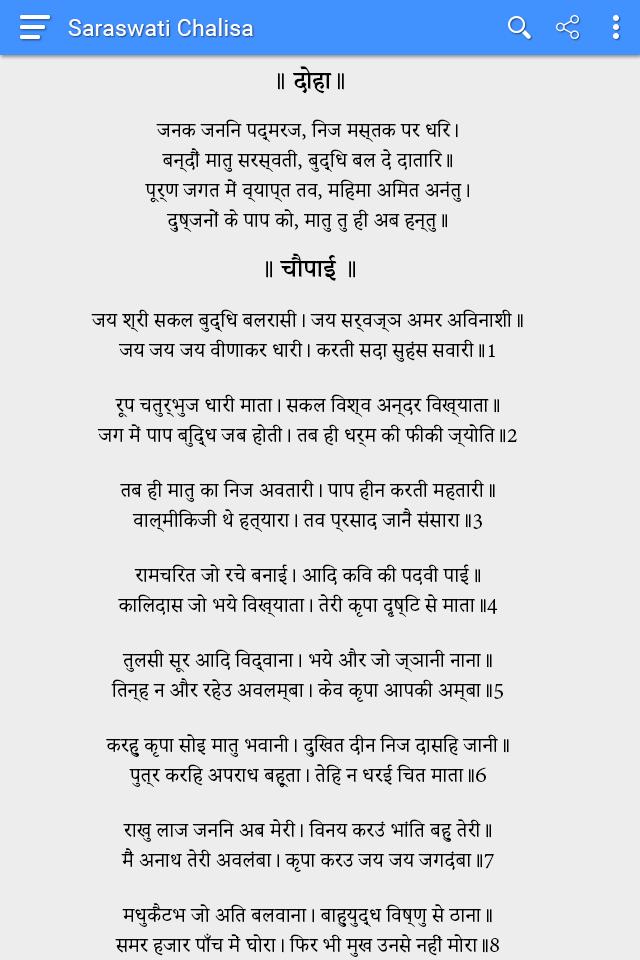 Saraswati Chalisa
॥ दोहा ॥
जनक जननि पद्‌मरज, निज मस्‌तक पर धरि।
बन्‌दौं मातु सरस्‌वती, बुद्‌धि बल दे दातारि॥
पूर्‌ण जगत में व्‌याप्‌त तव, महिमा अमित अनंतु।
दुष्‌जनों के पाप को, मातु तु ही अब हन्‌तु॥
॥ चौपाई ॥
जय श्‌री सकल बुद्‌धि बलरासी। जय सर्‌वज्‌ञ अमर अविनाशी॥
जय जय जय वीणाकर धारी। करती सदा सुहंस सवारी॥1
रूप चतुर्‌भुज धारी माता। सकल विश्‌व अन्‌दर विख्‌याता॥
जग में पाप बुद्‌धि जब होती। तब ही धर्‌म की फीकी ज्‌योति॥2
तब ही मातु का निज अवतारी। पाप हीन करती महतारी॥
वाल्‌मीकिजी थे हत्‌यारा। तव प्‌रसाद जानै संसारा॥3
रामचरित जो रचे बनाई। आदि कवि की पदवी पाई॥
कालिदास जो भये विख्‌याता। तेरी कृपा दृष्‌टि से माता॥4
तुलसी सूर आदि विद्‌वाना। भये और जो ज्‌ञानी नाना॥
तिन्‌ह न और रहेउ अवलम्‌बा। केव कृपा आपकी अम्‌बा॥5
करहु कृपा सोइ मातु भवानी। दुखित दीन निज दासहि जानी॥
पुत्‌र करहि अपराध बहूता। तेहि न धरई चित माता॥6
राखु लाज जननि अब मेरी। विनय करउं भांति बहु तेरी॥
मै अनाथ तेरी अवलंबा। कृपा करउ जय जय जगदंबा॥7
मधुकैटभ जो अति बलवाना। बाहुयुद्‌ध विष्‌णु से ठाना॥
समर हजार पाँच में घोरा। फिर भी मुख उनसे नहीं मोरा॥8